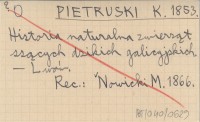 O PIETRUSKI K. 1853.
Historia naturalna zwierząt
ssących dzikich galicyjskich.
— Lwów.
Rec.: Nowicki M. 1866.